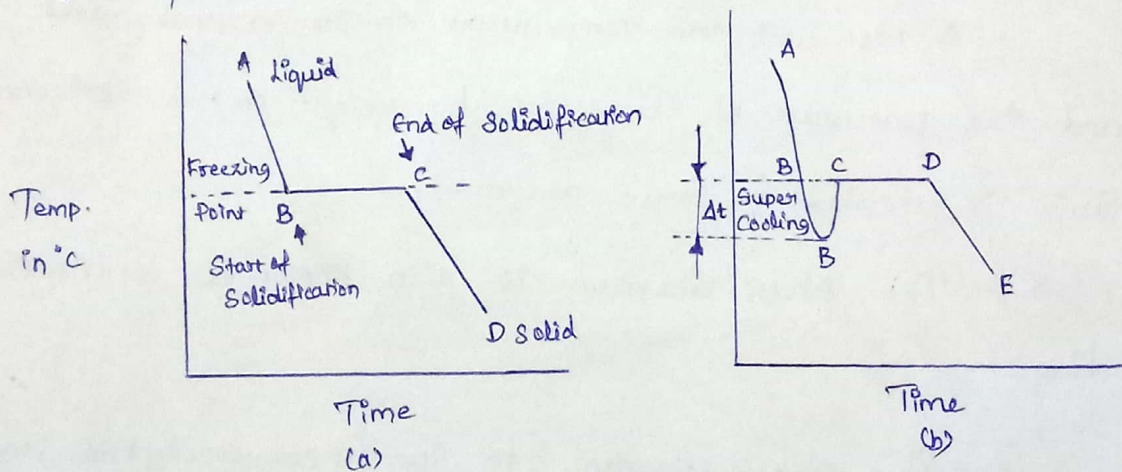 Temp.
in °C
A Liquid
End of Solidification
C
Freezing
Point
B
Start of
Solidification
D Solid
Time
(a)
A
B
C
D
Δt
Super
Cooling
B
E
Time
(b)